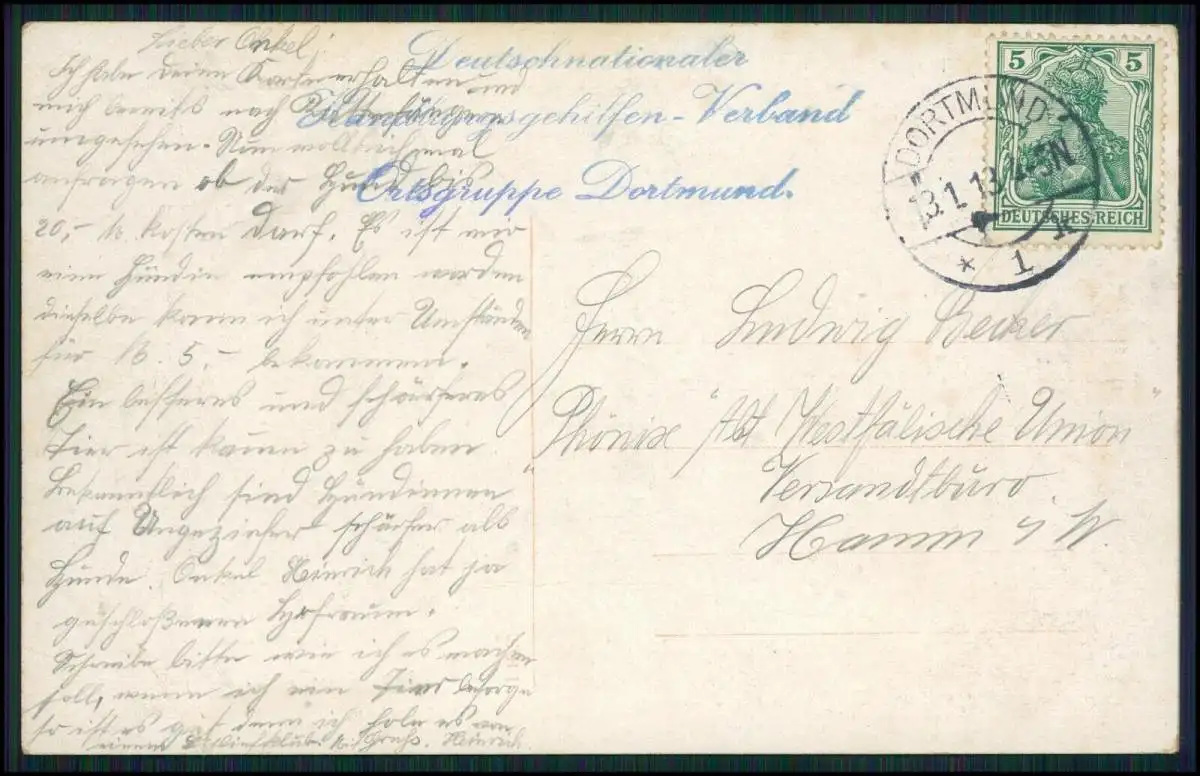 Lieber Onkel!
Ich habe deine Karte erhalten und
mich bereits nach
umgesehen. Nun wollt ich mal
anfragen ob der Hund bis
20,- M. kosten darf. Es ist mir
eine Hündin empfohlen worden
dieselbe kann ich unter Umständen
für M. 5,- bekommen.
Ein besseres und schärferes
Tier ist kaum zu haben
Bekanntlich sind Hündinnen
auf Ungeziefer schärfer als
Hunde. Onkel Heinrich hat ja
geschloßenen Hofraum.
Schreibe bitte wie ich es machen
soll, wenn ich ein Tier besorge
so ist es gut denn ich hole es von
einem Heinrich
Deutschnationaler
Handlungsgehilfen-Verband
Ortsgruppe Dortmund.
5 5
DEUTSCHES REICH
DORTMUND
13.1.13. 4-5N
* 1 k
Herrn Ludwig Becker
Phönix "Abt Westfälische Union"
Versandtbüro
Hamm i/W.